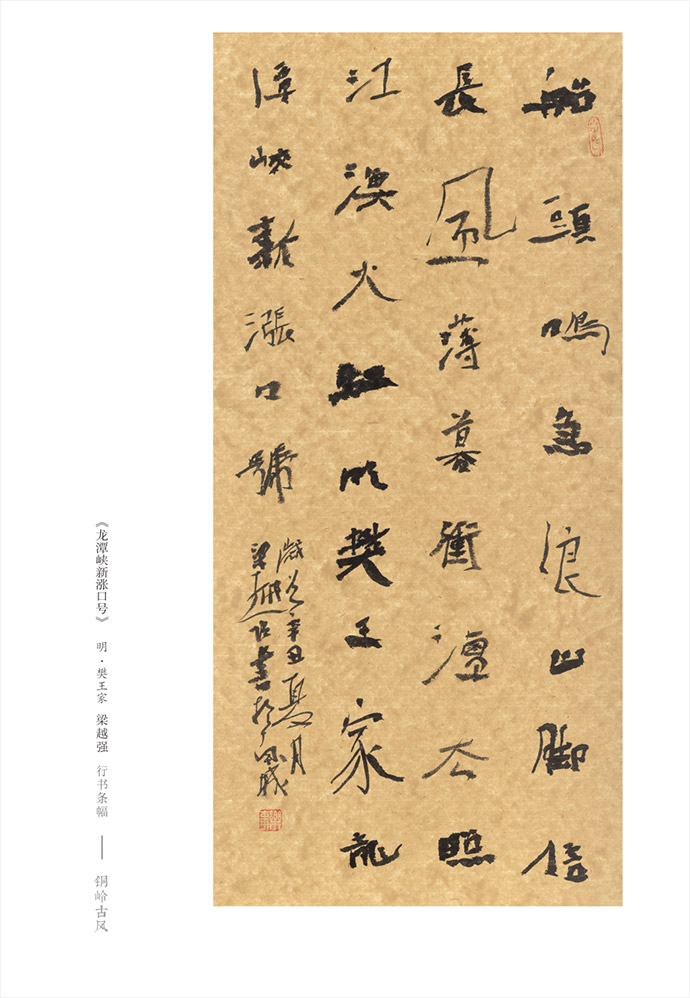 船頭鳴急浪山脚信
長風薄暮衝潭去照
江漁火紅明樊王家龍
潭峽新漲口號
歲 辛丑夏月
梁越強書於
《龙潭峡新涨口号》 明·樊王家 梁越强 行书条幅 —— 铜岭古风